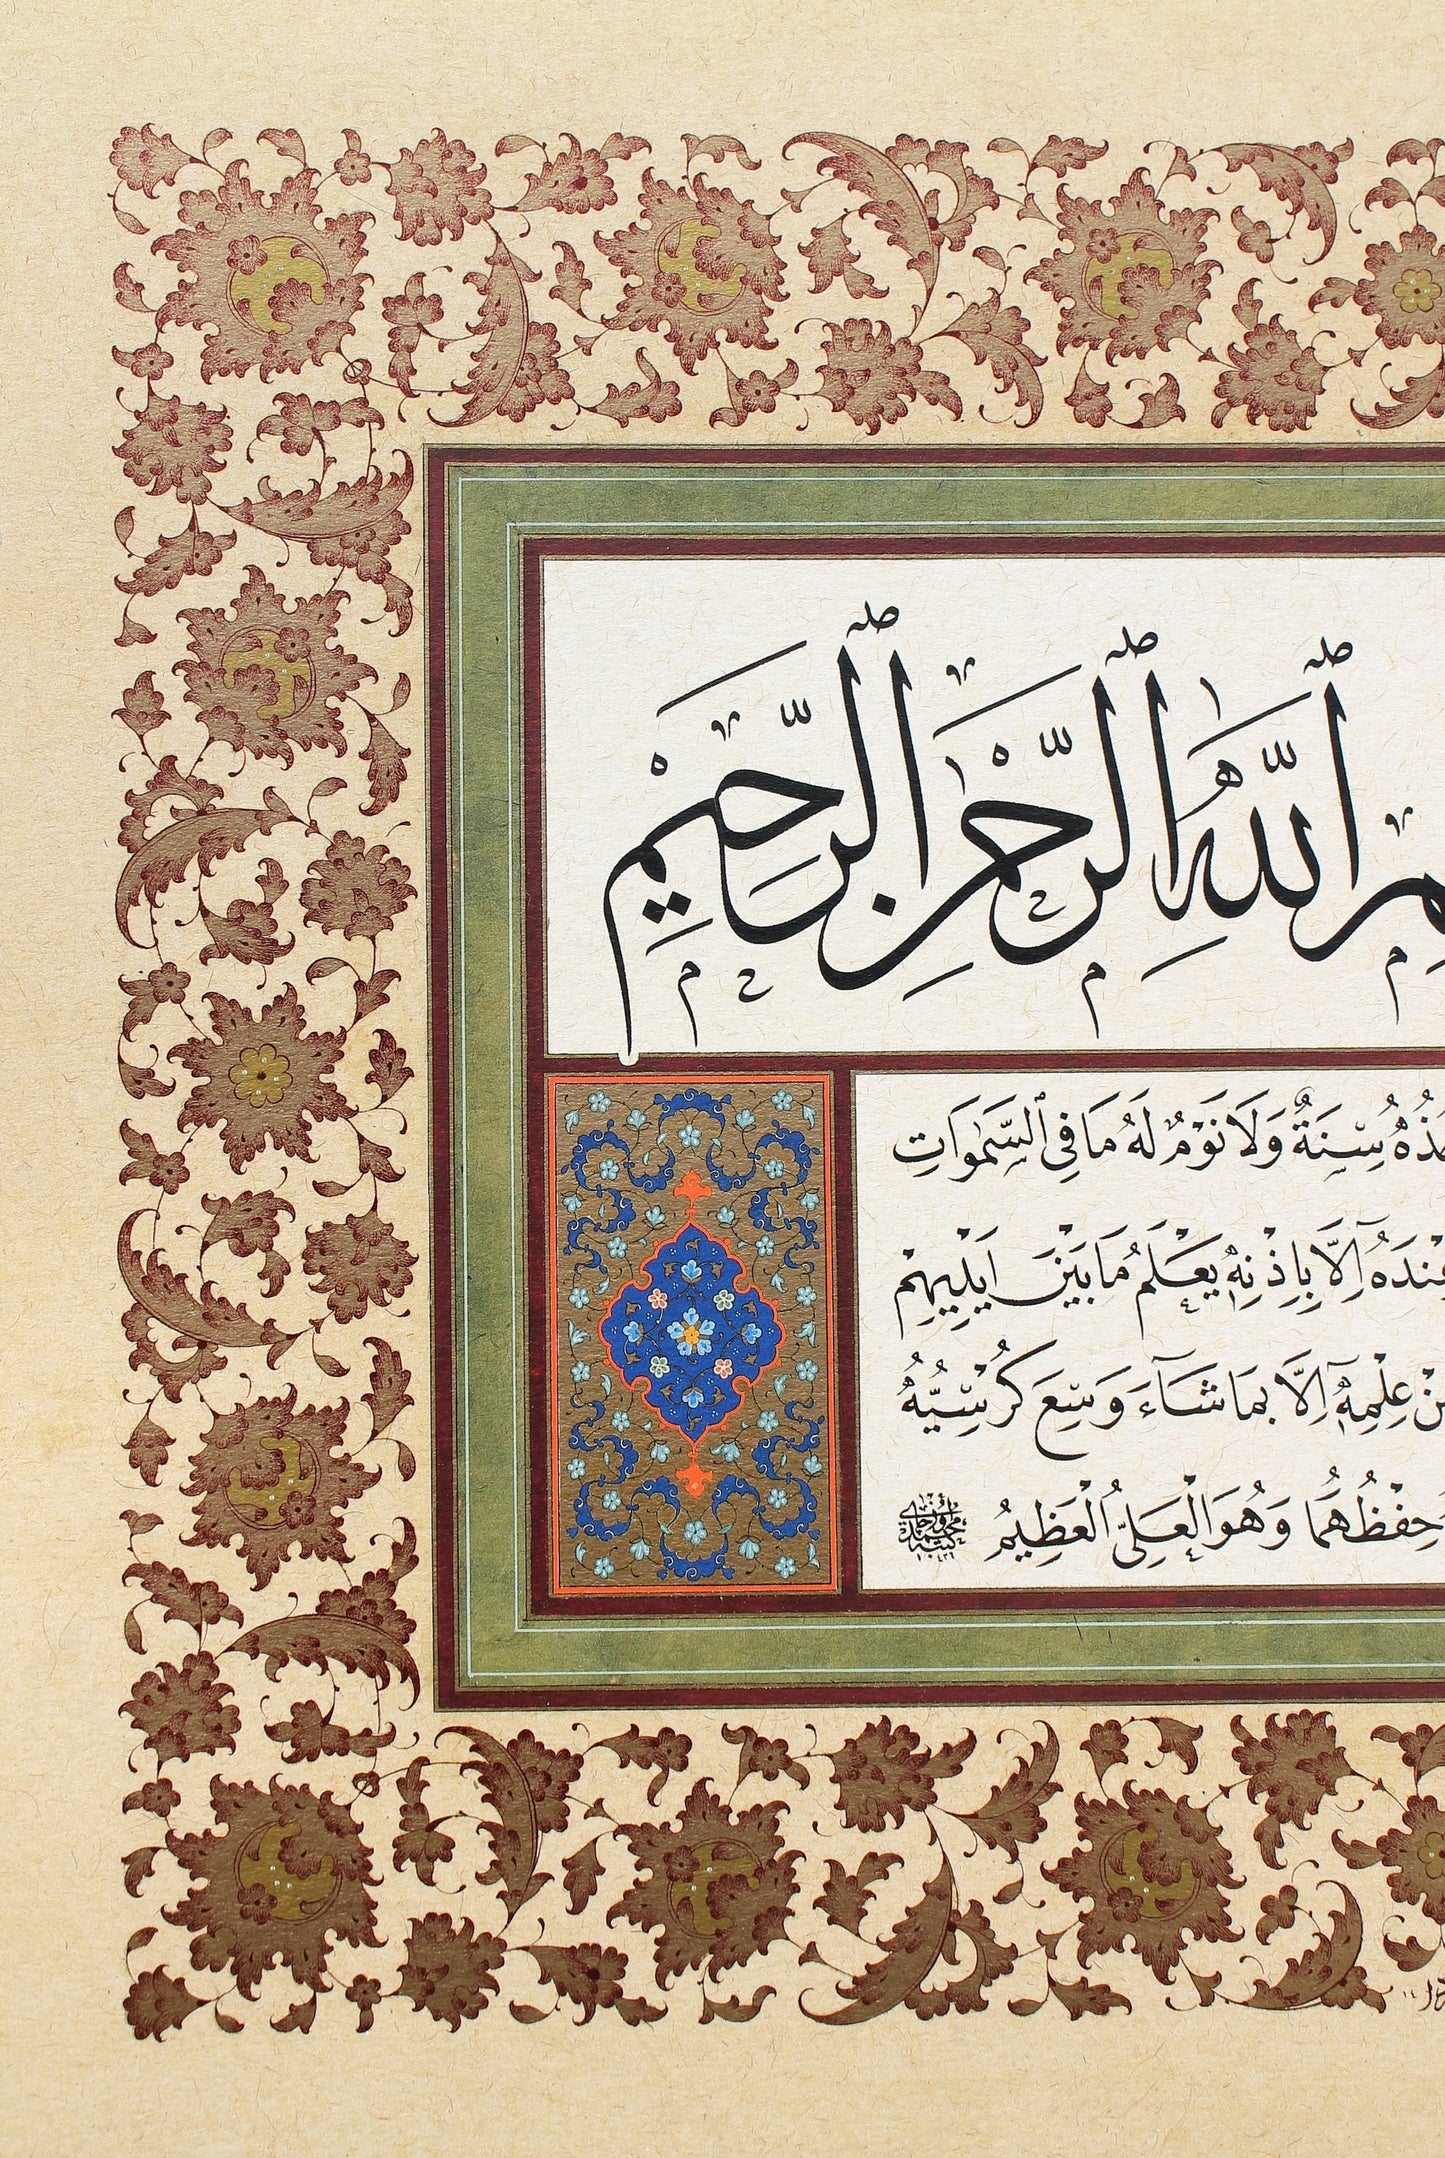 ٱللَّهِ ٱلرَّحْمٰنِ ٱلرَّحِيمِ
سِنَةٌ وَلَا نَوْمٌ لَهُ مَا فِي ٱلسَّمٰوَاتِ
عِنْدَهُ اِلَّا بِاِذْنِهٖ يَعْلَمُ مَا بَيْنَ اَيْدِيهِمْ
مِنْ عِلْمِهٖٓ اِلَّا بِمَا شَٓاءَ وَسِعَ كُرْسِيُّهُ
حِفْظُهُمَا وَهُوَ الْعَلِيُّ الْعَظِيمُ